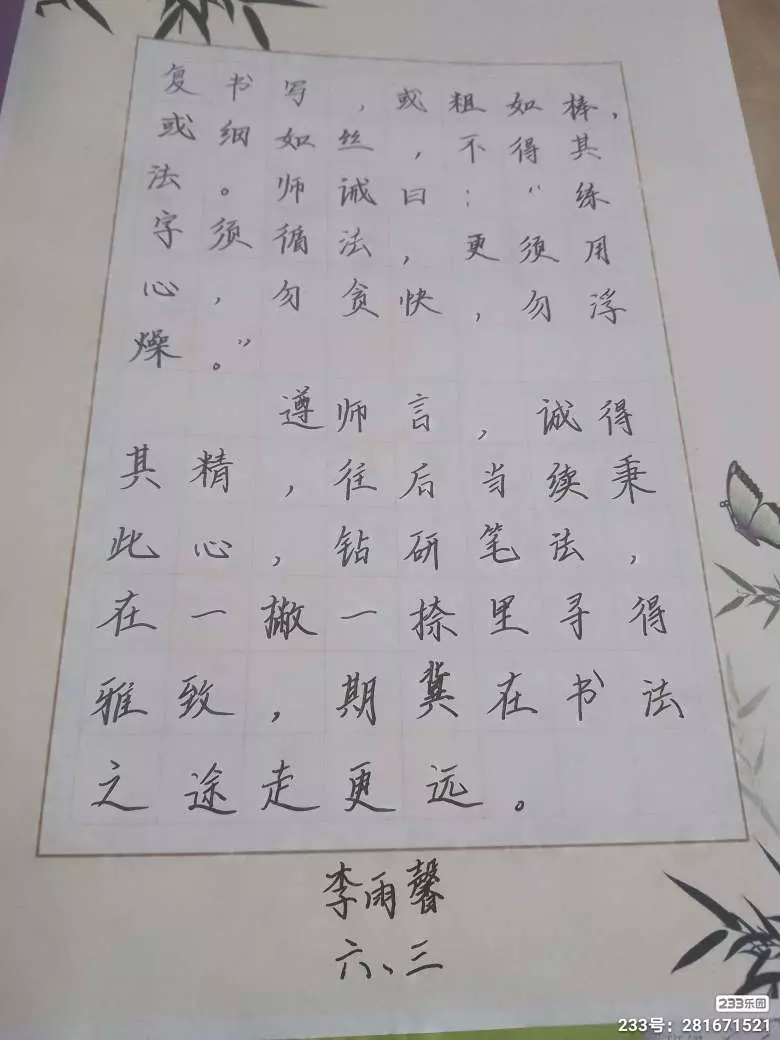 复书写，或粗如棒，
或细如丝，不得其
法。师诫曰：“练
字须循法，更须用
心，勿贪快，勿浮
燥。”
遵师言，诚得
其精，往后当续秉
此心，钻研笔法，
在一撇一捺里寻得
雅致，期冀在书法
之途走更远。
李雨馨
六、三
233乐园
233号：281671521